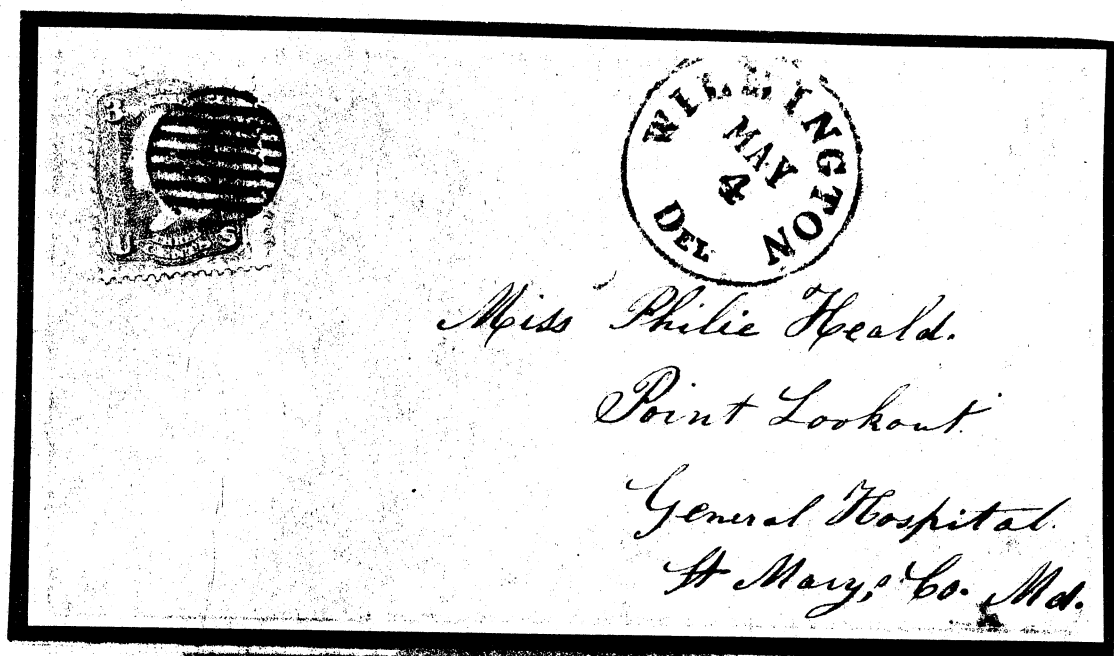 3
U S
THREE CENTS
WILMINGTON
MAY
4
DEL
Miss Philie Heald.
Point Lookout.
General Hospital.
St Mary,s Co. Md.